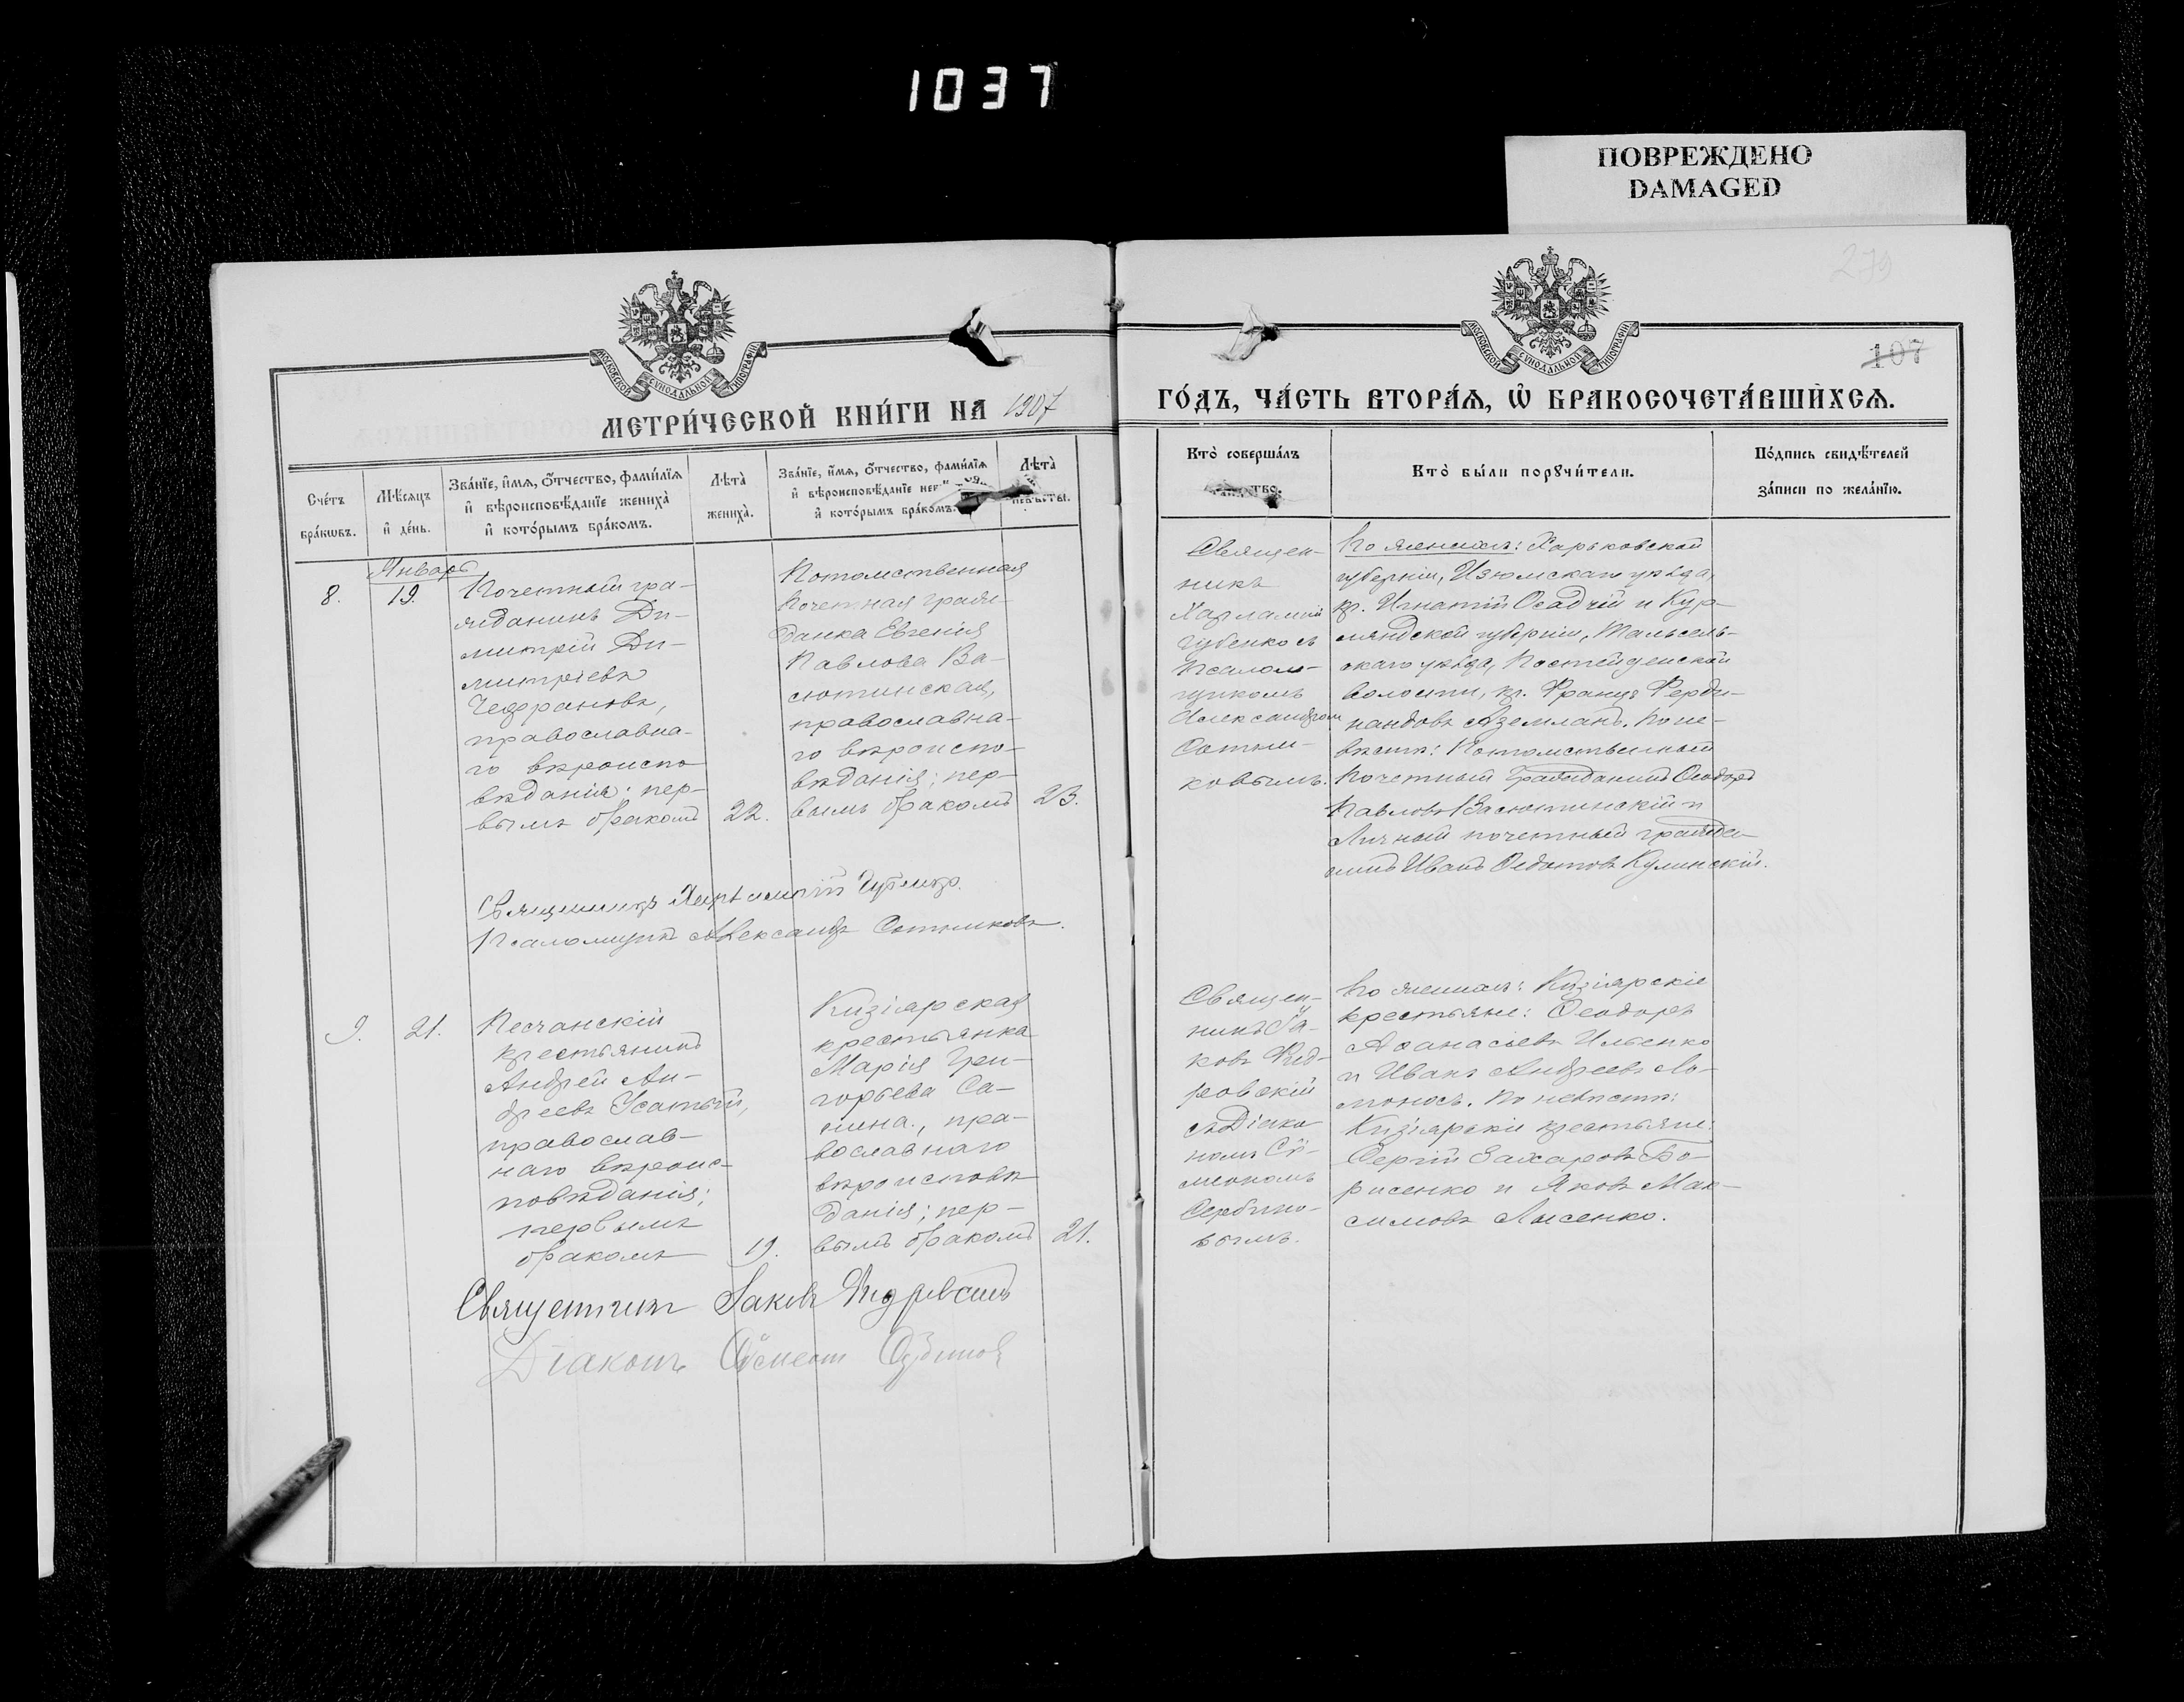 1037
ПОВРЕЖДЕНО
DAMAGED
279
107
МОСКОВСКОЙ СУНОДАЛЬНОЙ ТИПОГРАФІИ
МОСКОВСКОЙ СУНОДАЛЬНОЙ ТИПОГРАФІИ
МЕТРИ́ЧЕСКОЙ КНИ́ГИ НА 1907
ГО́ДЪ, ЧА́СТЬ ВТОРА́Ѧ, Ѡ҆ БРАКОСОЧЕТА́ВШИХСѦ.
Сче́тъ
бра́кѡвъ.
Мѣ́сѧцъ
и҆ де́нь.
Зва́нїе, и҆́мѧ, ѻ҆́тчество, фами́лїѧ
и҆ вѣроисповѣ́данїе жениха̀
и҆ кото́рымъ бра́комъ.
Лѣта̀
жениха̀.
Зва́нїе, и҆́мѧ, ѻ҆́тчество, фами́лїѧ
и҆ вѣроисповѣ́данїе
и҆ кото́рымъ бра́комъ.
Лѣта̀
невѣ́сты.
Кто̀ соверша́лъ
Кто̀ бы́ли порꙋчи́тели.
По́дпись свидѣ́телей
за́писи по жела́нїю.
Январь
8.
19.
Почетный гра-
жданинъ Ди-
митрій Ди-
митріевъ
православна-
го вѣроиспо-
вѣданія; пер-
вымъ бракомъ
22.
Потомственная
почетная граж-
данка Евгенія
Павлова Ва-
сютинская,
православна-
го вѣроиспо-
вѣданія; пер-
вымъ бракомъ
23.
Священ-
никъ
Харлампій
Губенко съ
псалом-
щикомъ
Александромъ
Сотни-
ковымъ.
По женихѣ: Харьковской
губерніи, Изюмскаго уѣзда,
кр. Игнатій Осадчій и Кур-
ляндской губерніи, Тальсен-
скаго уѣзда,
волости, кр. Францъ Ферди-
нандовъ По не-
вѣстѣ: Потомственный
почетный гражданинъ Ѳеодоръ
Павловъ Васютинскій и
Личный почетный гражда-
нинъ Иванъ Ѳедотовъ Кулинскій.
Священникъ Харлампій Губенко.
Псаломщикъ Александръ Сотниковъ.
9.
21.
Песчанскій
крестьянинъ
Андрей Ан-
дреевъ Усатый,
православ-
наго вѣроис-
повѣданія;
первымъ
бракомъ
19.
Кизіярская
крестьянка
Марія Гри-
горьева Са-
пра-
вославнаго
вѣроисповѣ-
данія; пер-
вымъ бракомъ
21.
Священ-
никъ Іа-
ковъ
ровскій
съ Діако-
номъ Сѵ-
меономъ
Сербино-
вымъ.
По женихѣ: Кизіярскіе
крестьяне: Ѳеодоръ
Аѳанасіевъ Ильенко
и Иванъ Андреевъ Ло-
моносъ. По невѣстѣ:
Кизіярскіе крестьяне:
Сергій Захаровъ Бо-
рисенко и Яковъ Мак-
симовъ Лысенко.
Священникъ Іаковъ
Діаконъ Сѵмеонъ Сербиновъ